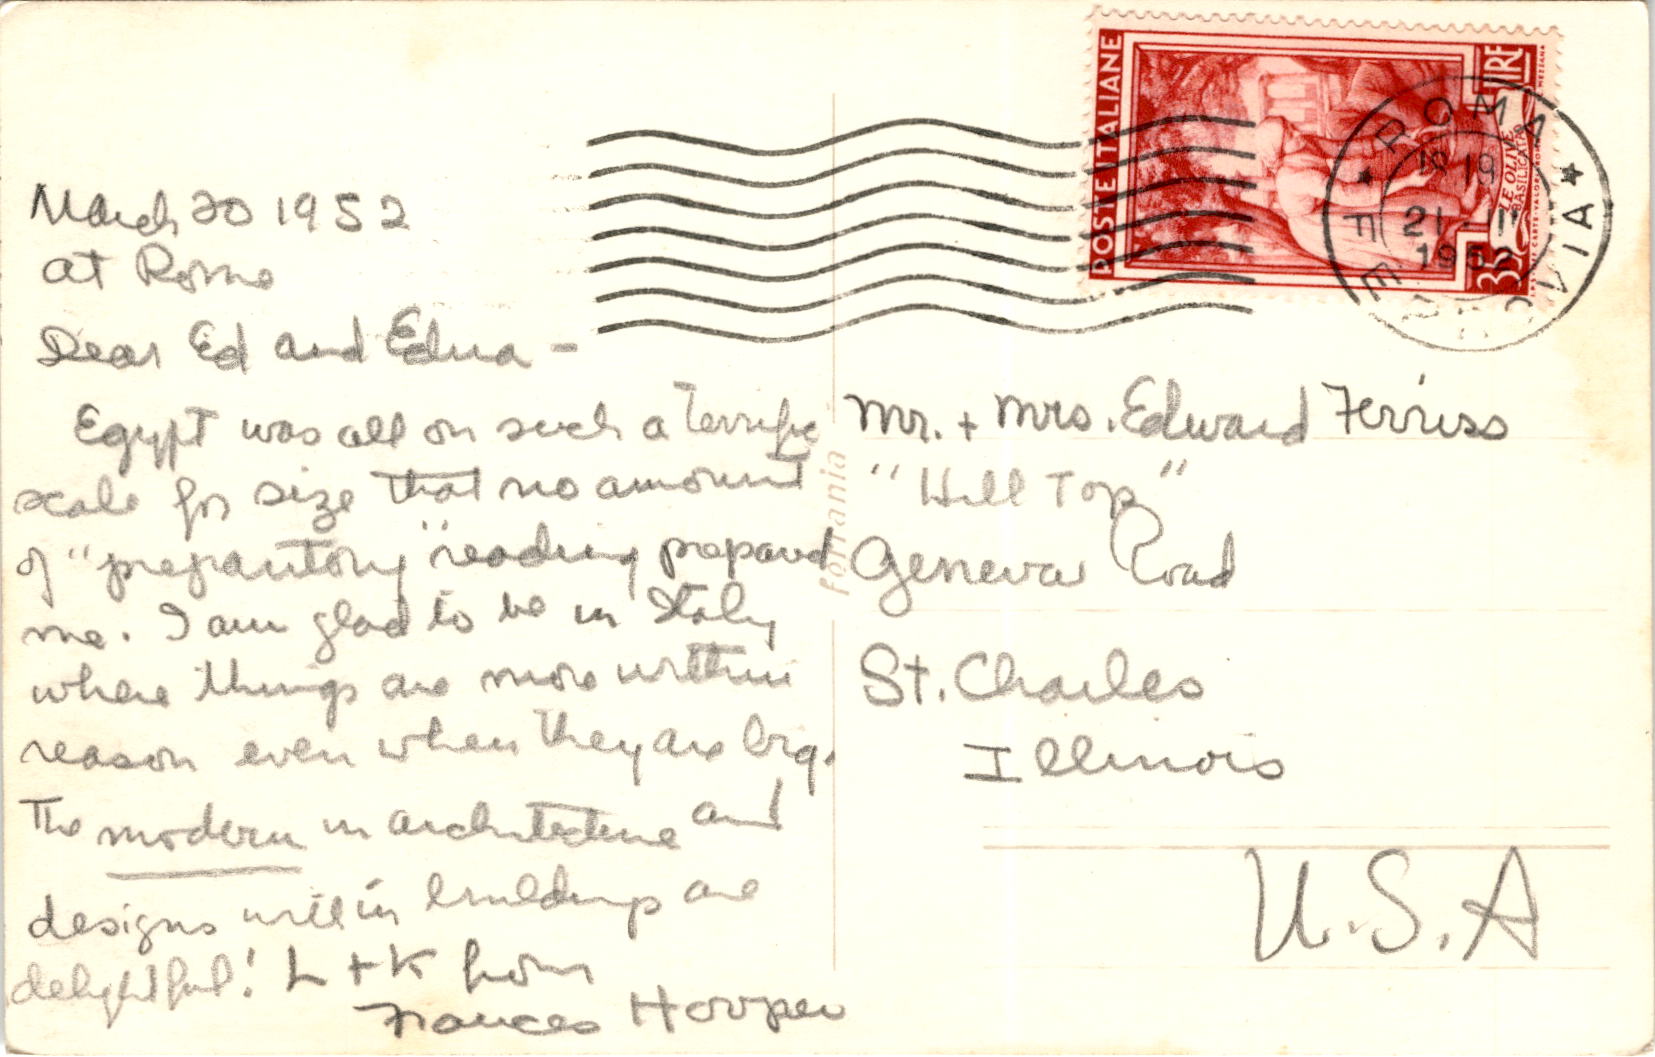 March 20 1952
at Rome
Dear Ed and Edna -
Egypt was all on such a terrific
scale for size that no amount
of "preparatory" reading prepared
me. I am glad to be in Italy
where things are more within
reason even when they are big.
The modern in architecture and
designs within buildings are
delightful! L + K from
Frances Hooper
POSTE ITALIANE
LIRE 35
LE OLIVE
BASILICATA
ROMA FERROVIA
18-19
21-III
1952
Mr. + Mrs. Edward Ferriss
"Hill Top"
Geneva Road
St. Charles
Illinois
U.S.A
Fotania